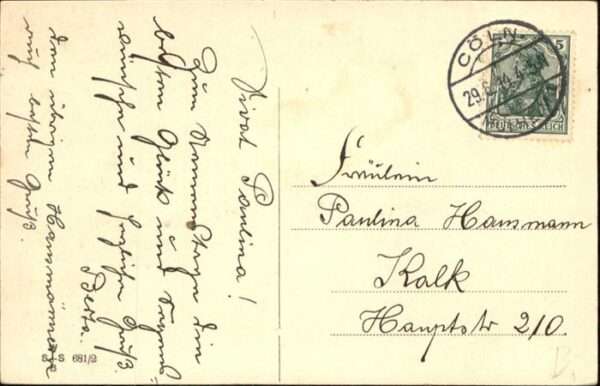 Vivat Paulina!
Zum Namenstage die
besten Glück und Segens-
wünsche und herzlichen Gruß.
Berta.
den übrigen Hausmännern
auch besten Gruß.
S-S 681/2
CÖLN
29.6.
5
DEUTSCHES REICH
Fräulein
Paulina Hausmann
Kalk
Hauptstr 210.